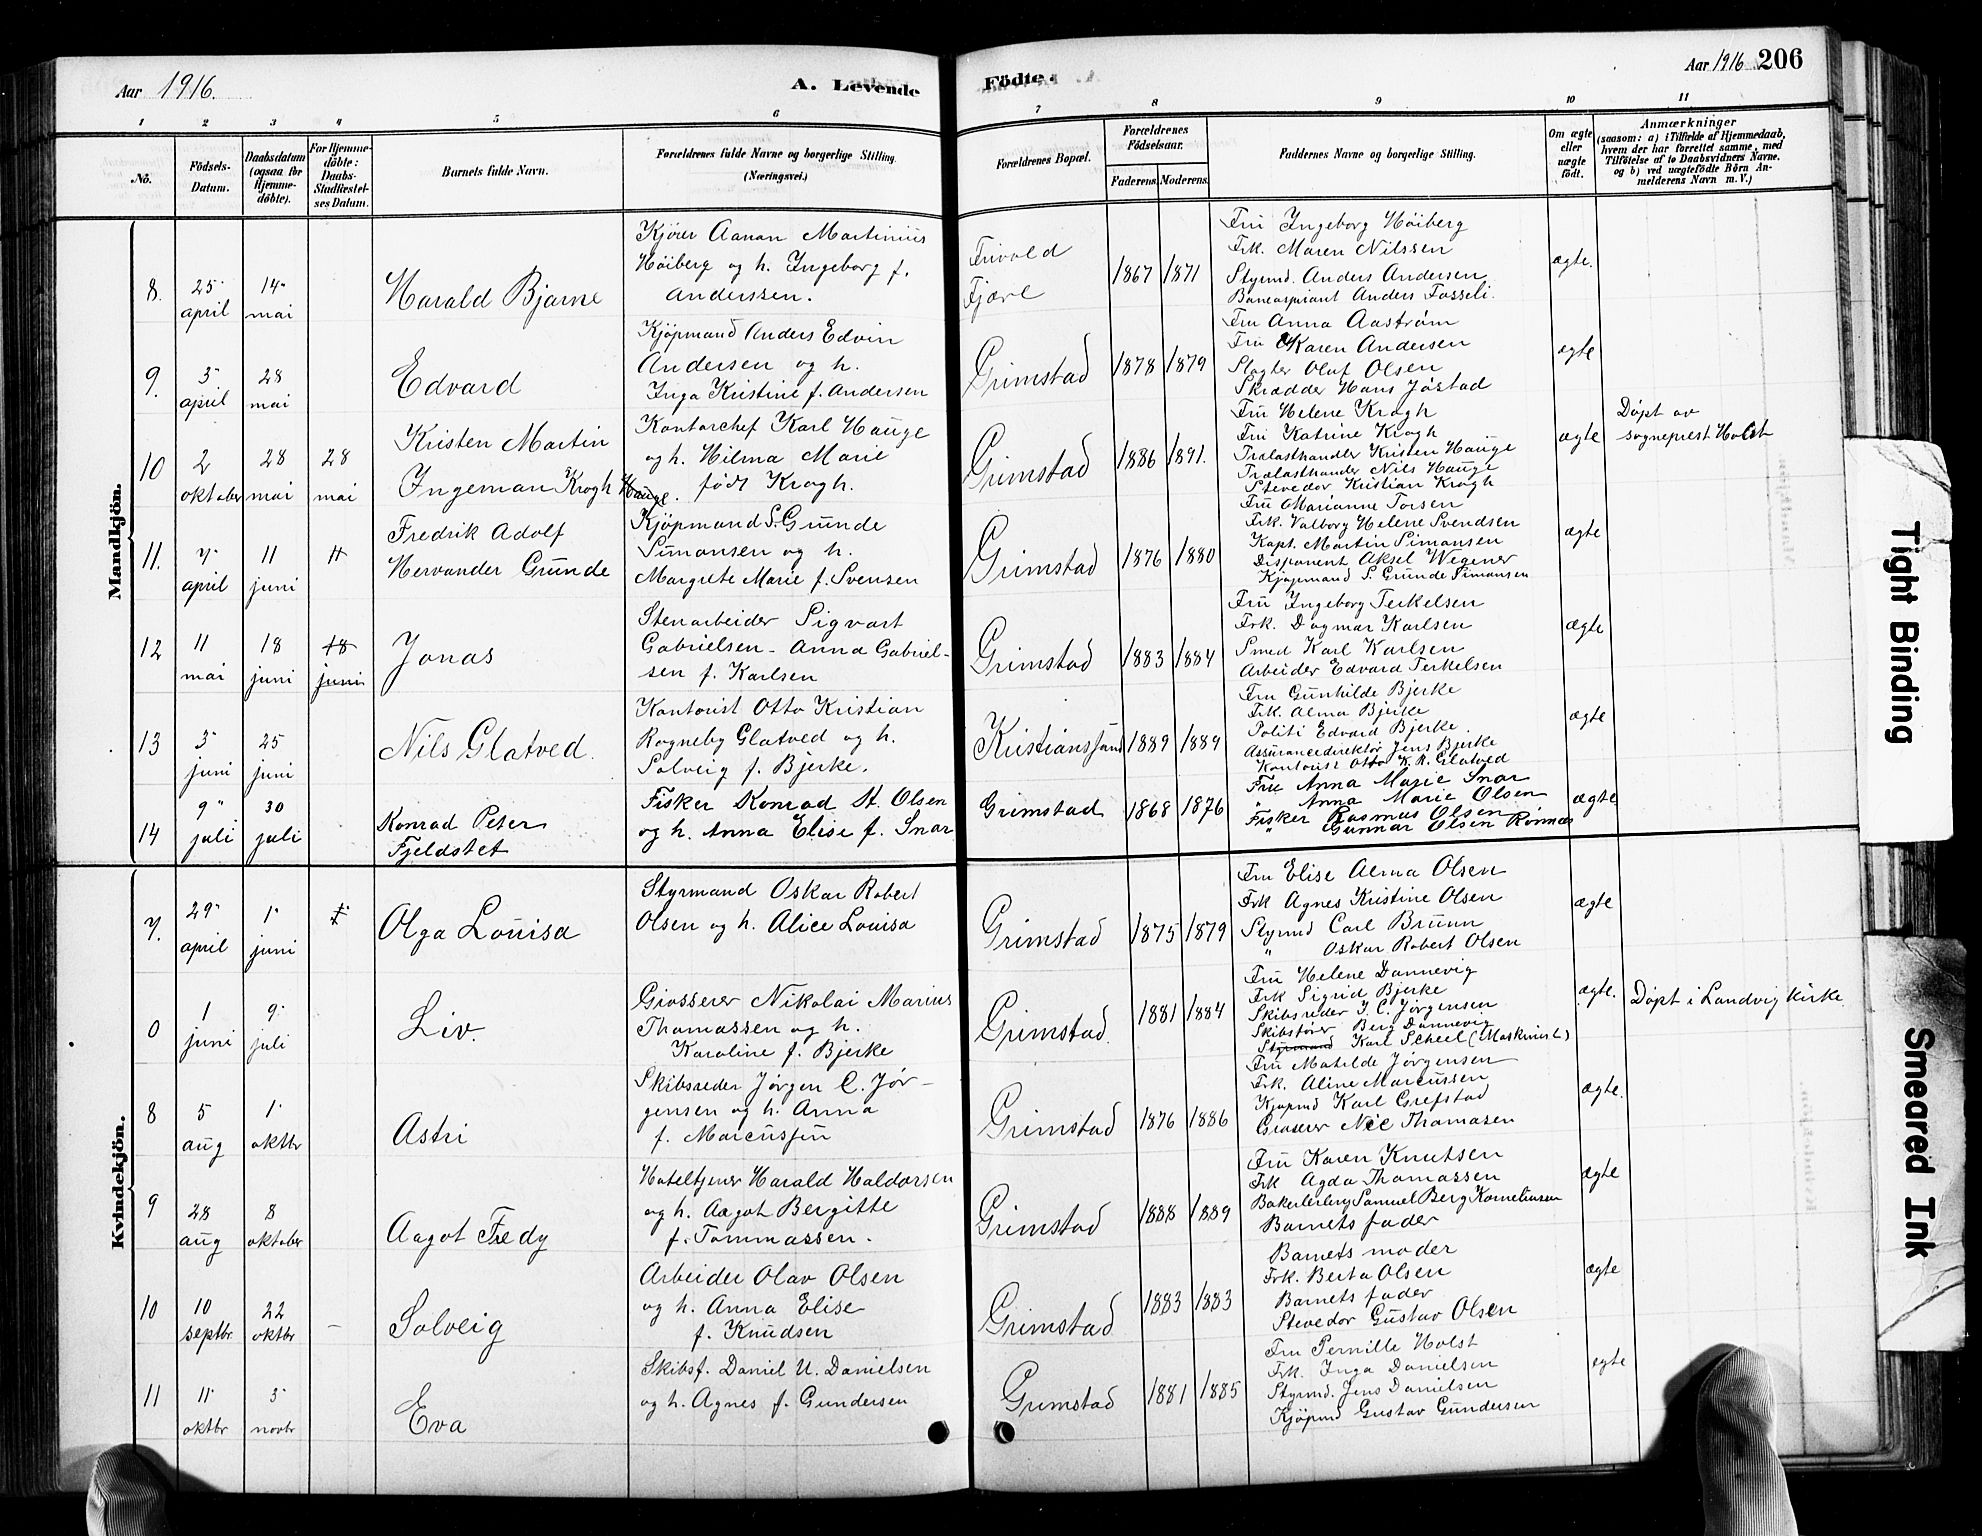 Aar 1916.
A. Levende
Födte.
Aar 1916
206
1 2 3 4 5 6 7 8 9 10 11
No.
Födsels-
Datum.
Daabsdatum
(ogsaa for
Hjemme-
döbte).
For Hjemme-
döbte:
Daabs-
Stadfæstel-
ses Datum.
Barnets fulde Navn.
Forældrenes fulde Navne og borgerlige Stilling.
(Næringsvei.)
Forældrenes Bopæl.
Forældrenes
Födselsaar.
Faderens. Moderens.
Faddernes Navne og borgerlige Stilling.
Om ægte
eller
uægte
født.
Anmærkninger
(saasom: a) i Tilfælde af Hjemmedaab,
hvem der har forrettet samme, med
Tilföielse af to Daabsvidners Navne.
og b) ved uægtefödte Börn An-
melderens Navn m. V.)
Mandkjön.
8.
25
april
14
mai
Harald Bjarne
Kjører Aanon Martinius
Høiberg og h. Ingeborg f.
Anderssen.
Frivold
Fjære
1867 1871
Fru Ingeborg Høiberg
Frk. Maren Nilssen
Styrmd. Anders Andersen
Baneaspirant Anders Fosseli.
ægte.
9.
3
april
28
mai
Edvard
Kjøpmand Anders Edvin
Andersen og h.
Inga Kristine f. Andersen
Grimstad
1878 1879
Fru Anna Aastrøm
Fru Karen Andersen
Slagter Oluf Olsen
Skrædder Hans Jøstad
ægte
10
2
oktober
28
mai
28
mai
Kristen Martin
Ingeman Krogh Hauge.
Kontorchef Karl Hauge
og h. Hilma Marie
født Krogh.
Grimstad
1886 1891.
Fru Helene Krogh
Fru Katrine Krogh
Trælasthandler Kristen Hauge
Trælasthander Nils Hauge
Stevedor Kristian Krogh
ægte
Døpt av
sogneprest Holst
11.
7
april
11
juni
11
Fredrik Adolf
Hervander Grunde
Kjøpmand S. Grunde
Simonsen og h.
Margrete Marie f. Svensen
Grimstad
1876 1880
Fru Marianne Torsen
Frk. Valborg Helene Svendsen
Kapt. Martin Simonsen
Disponent Aksel Wegener
Kjøpmand S. Grunde Simonsen
ægte
12
11
mai
18
juni
18
juni
Jonas
Stenarbeider Sigvart
Gabrielsen - Anna Gabriel-
sen f. Karlsen
Grimstad
1883 1884
Fru Ingeborg Terkelsen
Frk. Dagmar Karlsen
Smed Karl Karlsen
Arbeider Edvard Terkelsen
ægte
13
3
juni
25
juni
Nils Glatved.
Kontorist Otto Kristian
Rogneby Glatved og h.
Solveig f. Bjerke.
Kristianssund
1889 1889
Fru Gunhilde Bjerke
Frk. Alma Bjerke
Politi Edvard Bjerke.
Assurancedirektør Jens Bjerke
Kontorist Otto K. R. Glatved
ægte
14
9
juli
30
juli
Konrad Peter
Fjeldstet
Fisker Konrad St. Olsen
og h. Anna Elise f. Snar
Grimstad
1868 1876
Fru Anna Marie Snar
" Anna Marie Olsen
Fisker Rasmus Olsen
" Gunnar Olsen Rønnes
ægte
Kvindekjön.
7.
29
april
1
juni
Olga Louisa
Styrmand Oskar Robert
Olsen og h. Alice Louisa
Grimstad
1875 1879
Fru Elise Alma Olsen
Frk Agnes Kristine Olsen
Styrmd Carl Bruun
" Oskar Robert Olsen
ægte
0
1
juni
9
juli
Liv.
Grosserer Nikolai Marius
Thomassen og h.
Karoline f. Bjerke
Grimstad.
1881 1884
Fru Helene Dannevig
Frk Sigrid Bjerke
Skibsreder J. C. Jørgensen
Skibsfører Berg Dannevig
Styrmand Karl Scheel (Maskinist)
ægte.
Døpt i Landvig kirke
8
5
aug
1
oktbr
Astri
Skibsreder Jørgen C. Jør-
gensen og h. Anna
f. Marcussen
Grimstad
1876 1886
Fru Matilde Jørgensen
Frk. Aline Marcussen
Kjøpmd Karl Grefstad
Grosserer Nic Thomasen
ægte.
9
28
aug
8
oktober
Aagot Fredy
Hoteltjener Harald Haldorsen
og h. Aagot Bergitte
f. Tommassen.
Grimstad
1888 1889
Fru Karen Knutsen
Frk Agda Thomassen
Bakerlerling Samuel Berg Korneliussen
Barnets fader
ægte
10
10
septbr
22
oktbr
-
Solveig
Arbeider Olav Olsen
og h. Anna Elise
f. Knudsen
Grimstad
1883 1883
Barnets moder
Frk. Berta Olsen
Barnets fader
Stevedor Gustav Olsen
ægte
11
11
oktbr
3
novbr
Eva
Skibsf. Daniel U. Danielsen
og h. Agnes f. Gundersen
Grimstad
1881 1885
Fru Pernille Holst
Frk. Inga Danielsen
Styrmd. Jens Danielsen
Kjøpmd Gustav Gundersen
ægte
Tight Binding
Smeared Ink